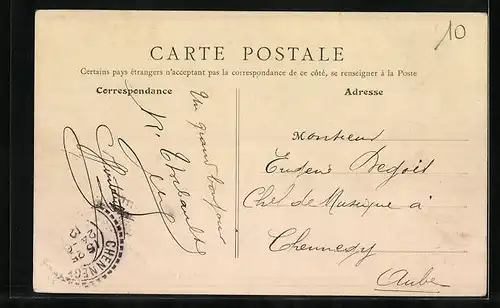 10
CARTE POSTALE
Certains pays étrangers n'acceptant pas la correspondance de ce côté, se renseigner à la Poste
Correspondance
Adresse
Un grand bonjour
Monsieur
Eugène
Chef de Musique à
Chennegy
Aube
CHENNEGY